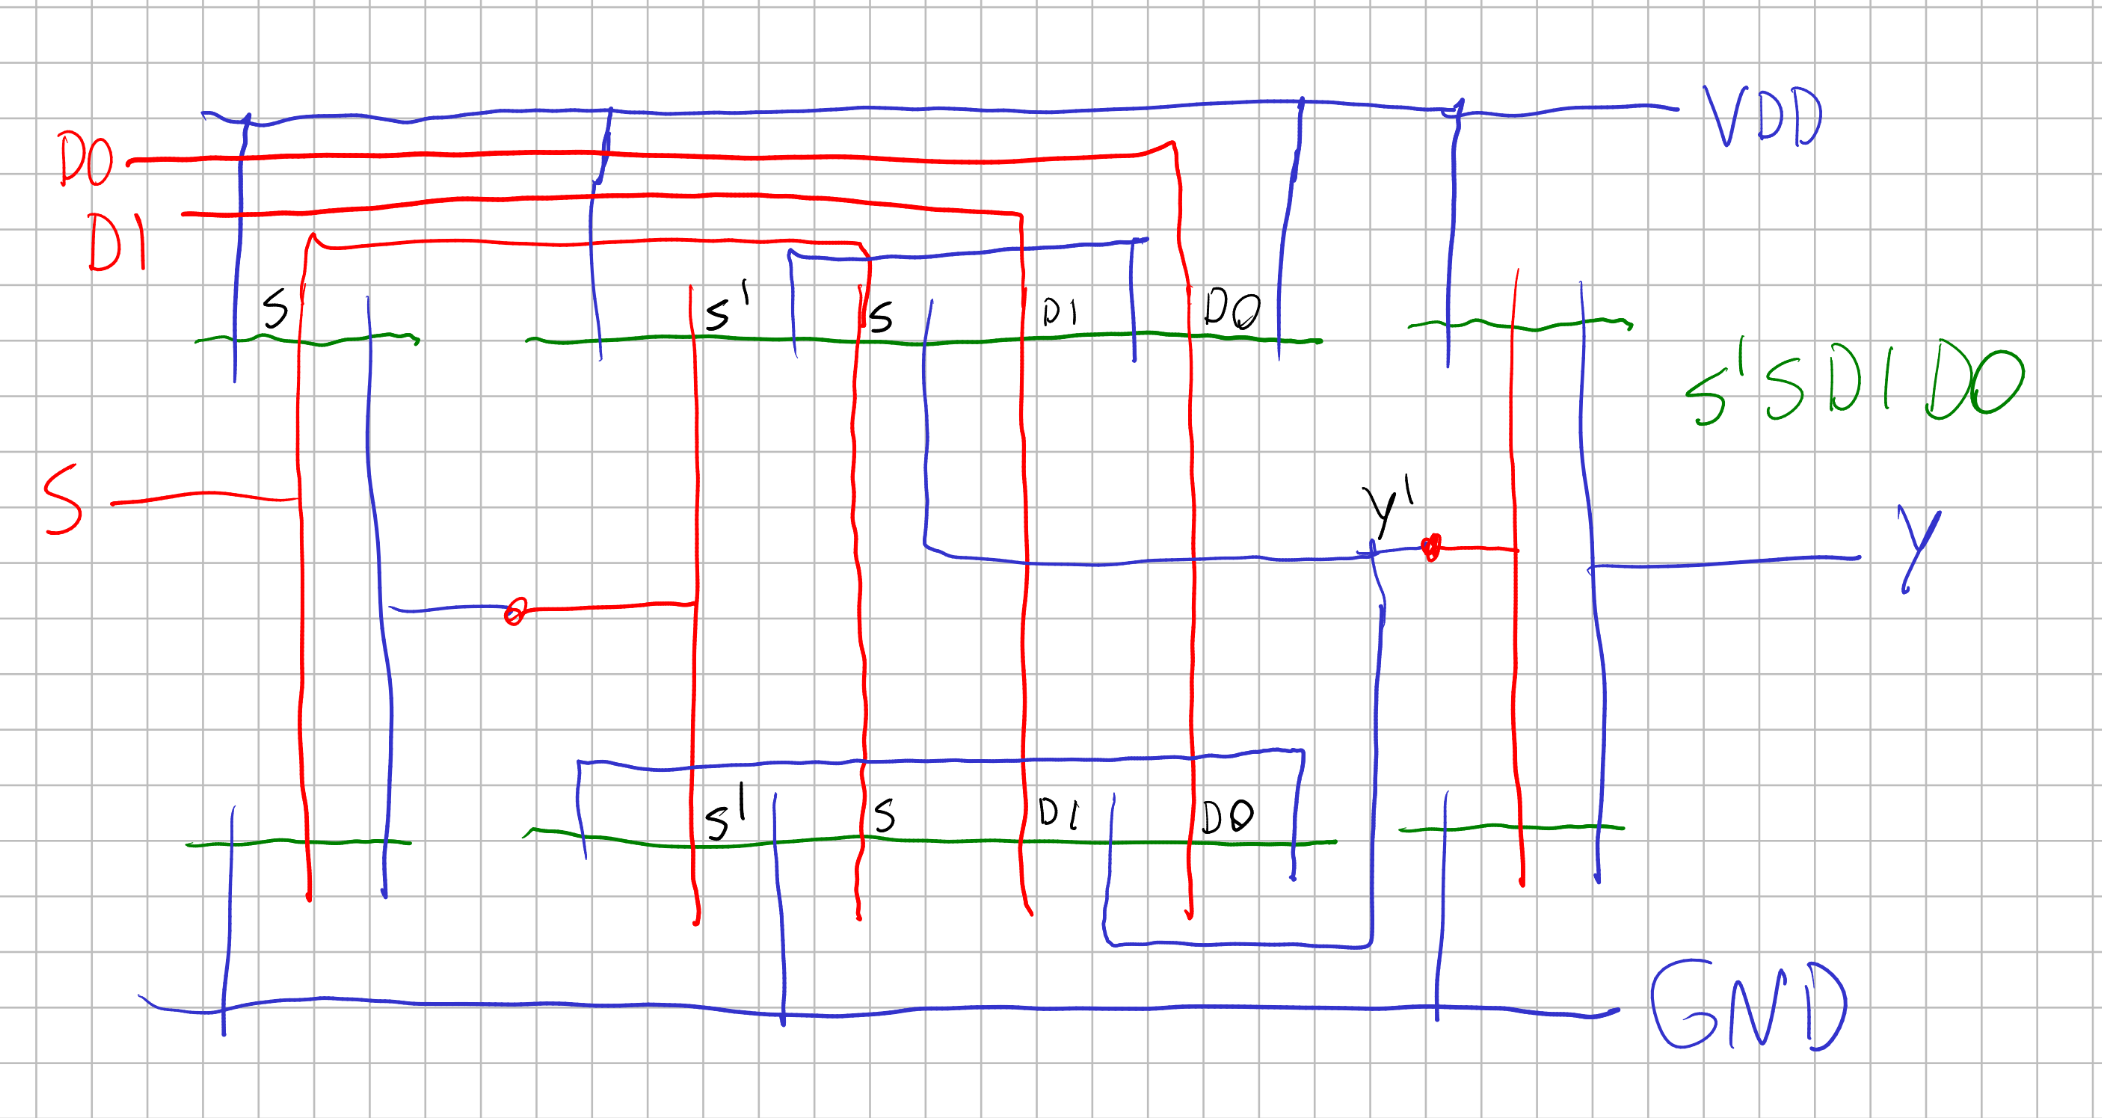 VDD
D0
D1
S S' S D1 D0
S'SD1D0
S
Y'
Y
S' S D1 D0
GND